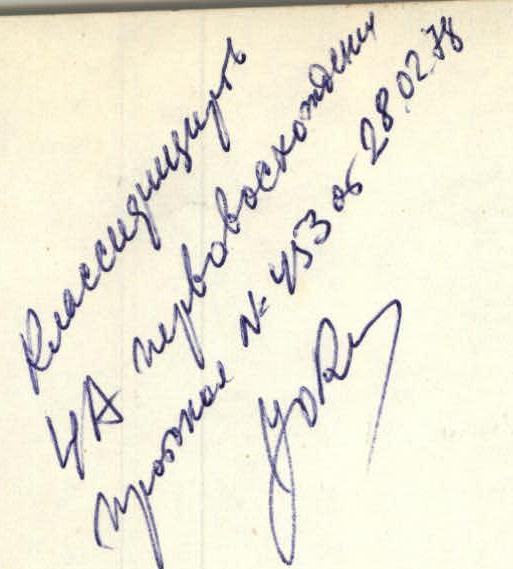 Классифицировать
4А первовосхождение
протокол № 453 от 28.02.78